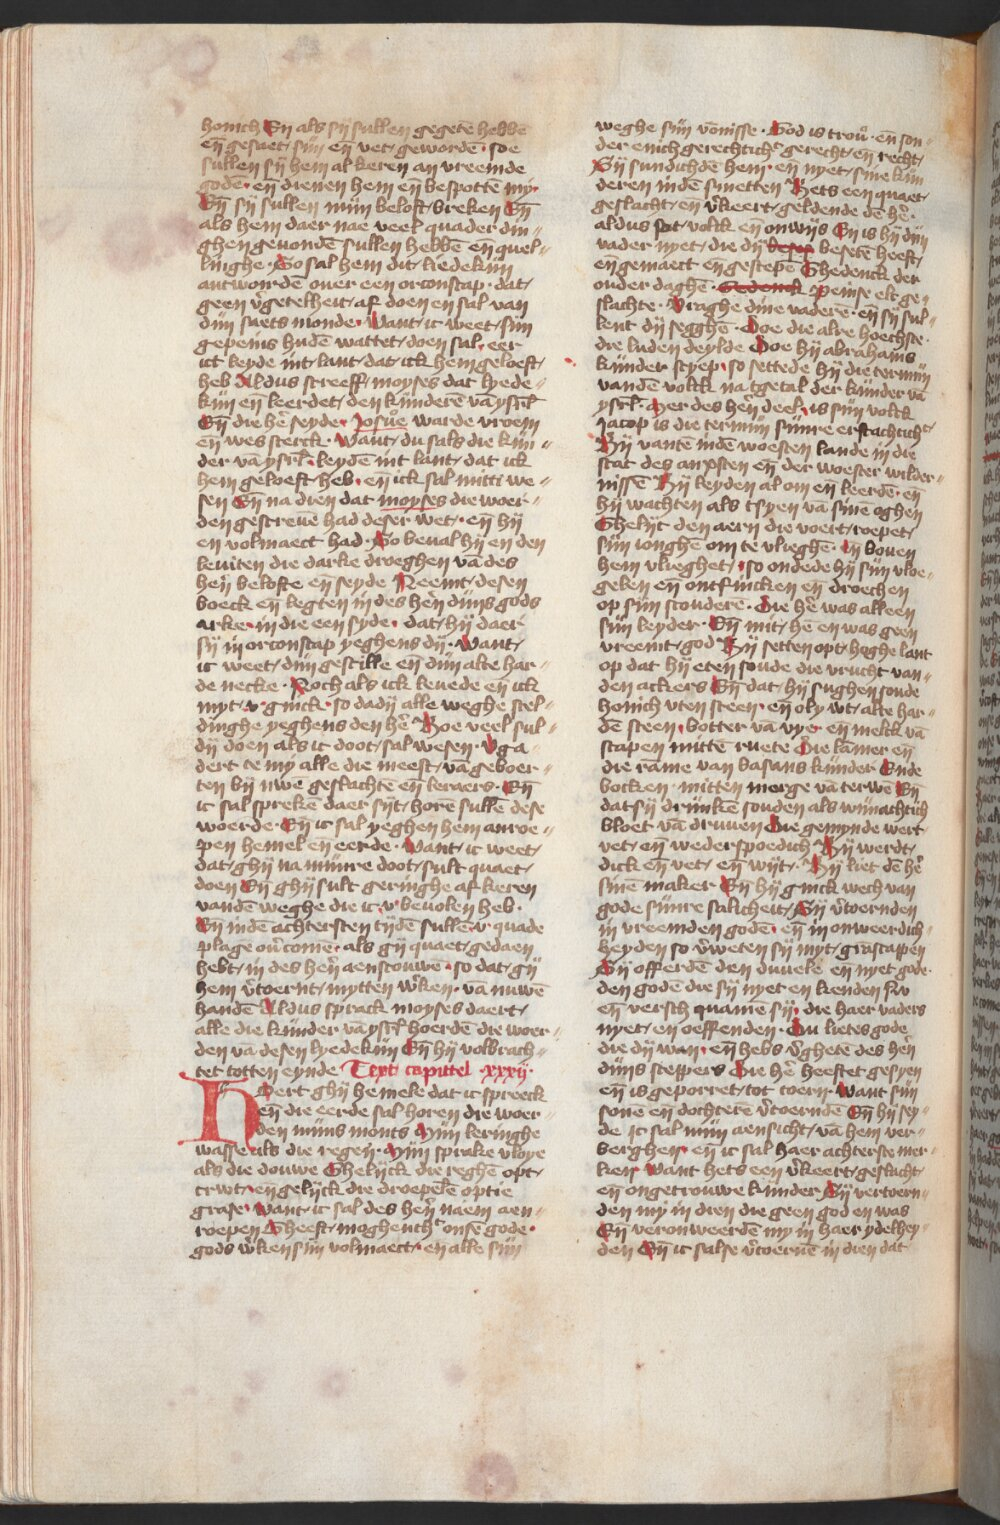 honich Eñ als sij sullen gegetē hebbē
eñ gesaet sijn eñ vet gewordē so e
sullen sij hem al keren an vreemde
godē eñ dienen hem eñ bespottē my
Eñ sij sullen mijn beloft breken Eñ
als hem daer nae veel quader din
ghen gevondē sullen hebbē en quel
linghe So sal hem dit liedekijn
antwoirdē over een orconscap dat
geen v̉getelheit af doen en sal van
dijn saets monde Want ic weet sijn
gepeins hudē wattet doen sal eer
ict leyde int lant dat ick hem geloeft
heb Aldus screeff moyses dat lyede
kijn eñ leerdet den kijnderē vā ysrl̄
Eñ die hē seyde Josue warde vroem
eñ wes sterck Want du sals die kijn
der vā ysrl̄ leydē int lant dat ick
hem geloeft heb eñ ick sal mitti we
sen Eñ na dien dat moyses die woer
den gescreuē had deser wet eñ hij
en volmaect had So beual hij en den
leuiten die darke droeghen vā des
heñ belofte eñ seyde Neemt desen
boeck eñ legten in des heñ dijns gods
arke in die een syde dat hij daer
sij in orconscap yeghens dij Want
ic weet dijn gestille eñ dijn alte har
de necke Noch als ick leuede eñ ick
myt v ginck so dadij alle weghe stel
dinghe yeghens den hē Hoe veel sul
dij doen als ic doot sal wesen Vga
dert te my alle die meest vā geboer
ten bij uwē geslachtē eñ leraers Eñ
ic sal sprekē daer sijt horē sullē dese
woerde Eñ ic sal yeghen hem anroe
pen hemel eñ eerde Want ic weet
dat ghij na mijnre doot sult quaet
doen Eñ ghij sult geringhe af keren
vandē weghe die ic v bevolen heb
Eñ indē achtersten tijdē sullē v quade
plagē ouͦ comē als gij quaet gedaen
hebt in des heñ aenscouwē so dat gij
hem v̉toernt mytten w̉ken vā uuwē
handē Aldus sprack moyses daert
alle die kijnder vā ysrl̄ hoerdē die woer
den vā desen lyedekijn Eñ hij volbrach
tet totten eynde Text capittel xxxij
Hoert ghij hemele dat ic spreeck
eñ die eerde sal horen die woer
den mijns monts Mijn leringhe
wasse als die regen Mijn sprake vloye
als die douwe Ghelijck die reghē opt
crwt eñ gelijck die droepelē optie
grase Want ic sal des heñ naem aen
roepen Gheeft moghenth̉ onsē gode
gods w̉ken sijn volmaect eñ alle sijn
weghe sijn vōnisse God is trou eñ son
der enich gerechtich̉ gerecht eñ recht
Sij sundichdē hem eñ nyet sine kijn
deren indē smetten Hets een quaet
geslacht eñ v̉keert geldende dē hē
aldus sot volck eñ onwijs En is hij dijn
vader nyet die dij besetē heeft
eñ gemaect eñ gescepē Ghedenck der
ouder daghē Gedenck Peinse elc ge
slachte Vraghe dine vaderē eñ sij sul
lent dij segghē Doe die alre hoechste
die luden deylde Doe hij abrahams
kijnder scyep so settede hij die termijn
vandē volck na tgetal der kijnder vā
ysrl̄ Mer des heñ deel is sijn volck
Jacop is die termijn sijnre erfachtich̉
Hij vantē indē woesten lande in die
stat des anxsten eñ der woester wilder
nissē Hij leyden al om eñ leerdē eñ
hij wachten als tsyen vā sinē oghen
Ghelijc den aern die voert roepet
sijn ionghē om te vlieghē Eñ bouen
hem vlieghet so ondede hij sijn vloe
gelen eñ ontfincken eñ droechen
op sijn scouderē Die hē was alleen
sijn leyder Eñ mit hē en was geen
vreemt god Hij setten opt hoghe lant
op dat hij eten soude die vrucht van
den ackers Eñ dat hij sughen soude
honich vten steen eñ oly wt alte har
dē steen botter vā vye eñ melck vā
scapen mittē ruete Die lāmer eñ
die rāme van basans kijnder Ende
bocken mitten merge vā terwē Eñ
dat sij drinkē souden als wijnachtich
bloet vā druuen Die gemynde wert
vet eñ wederspoedich Hij werdt
dick eñ vet eñ wijt Hij liet dē hē
sinē maker Eñ hij ginck wech van
gode sijnre salicheit Sij v̉toernden
in vreemden godē eñ in onweerdich
heyden so v̉weten sij myt grascappen
Sij offerdē den duuelē eñ nyet gode
den godē die sij nyet en kenden
eñ versch quamē sij die haer vaders
nyet en oeffenden Du lietes gode
die dij wan eñ hebs v̉ghetē des heñ
dijns sceppers Die hē heeftet gesyen
eñ is geporret tot toern Want sijn
sone eñ dochterē v̉toerndē Eñ hij sey
de Ic sal mijn aensicht vā hem ver
berghen eñ ic sal haer achterste mer
ken Want hets een v̉keert geslacht
eñ ongetrouwe kijnder Sij vertoern
den my in dien die geen god en was
Eñ veronweerdē my in haer ydelhey
den Eñ ic salse v̉toernē in dien dat